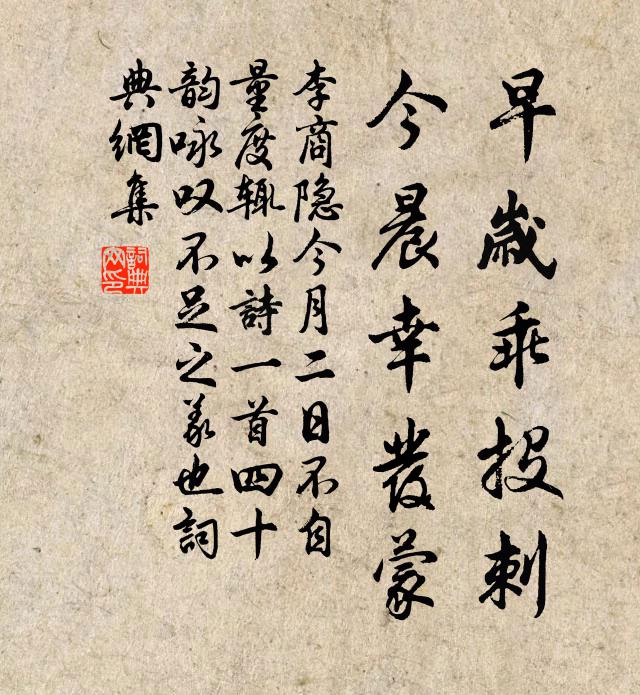 早歲乖投刺
今晨幸發蒙
李商隐今月二日不自
量度輒以詩一首四十
韵咏叹不足之義也詞
典網集
詞典
文印